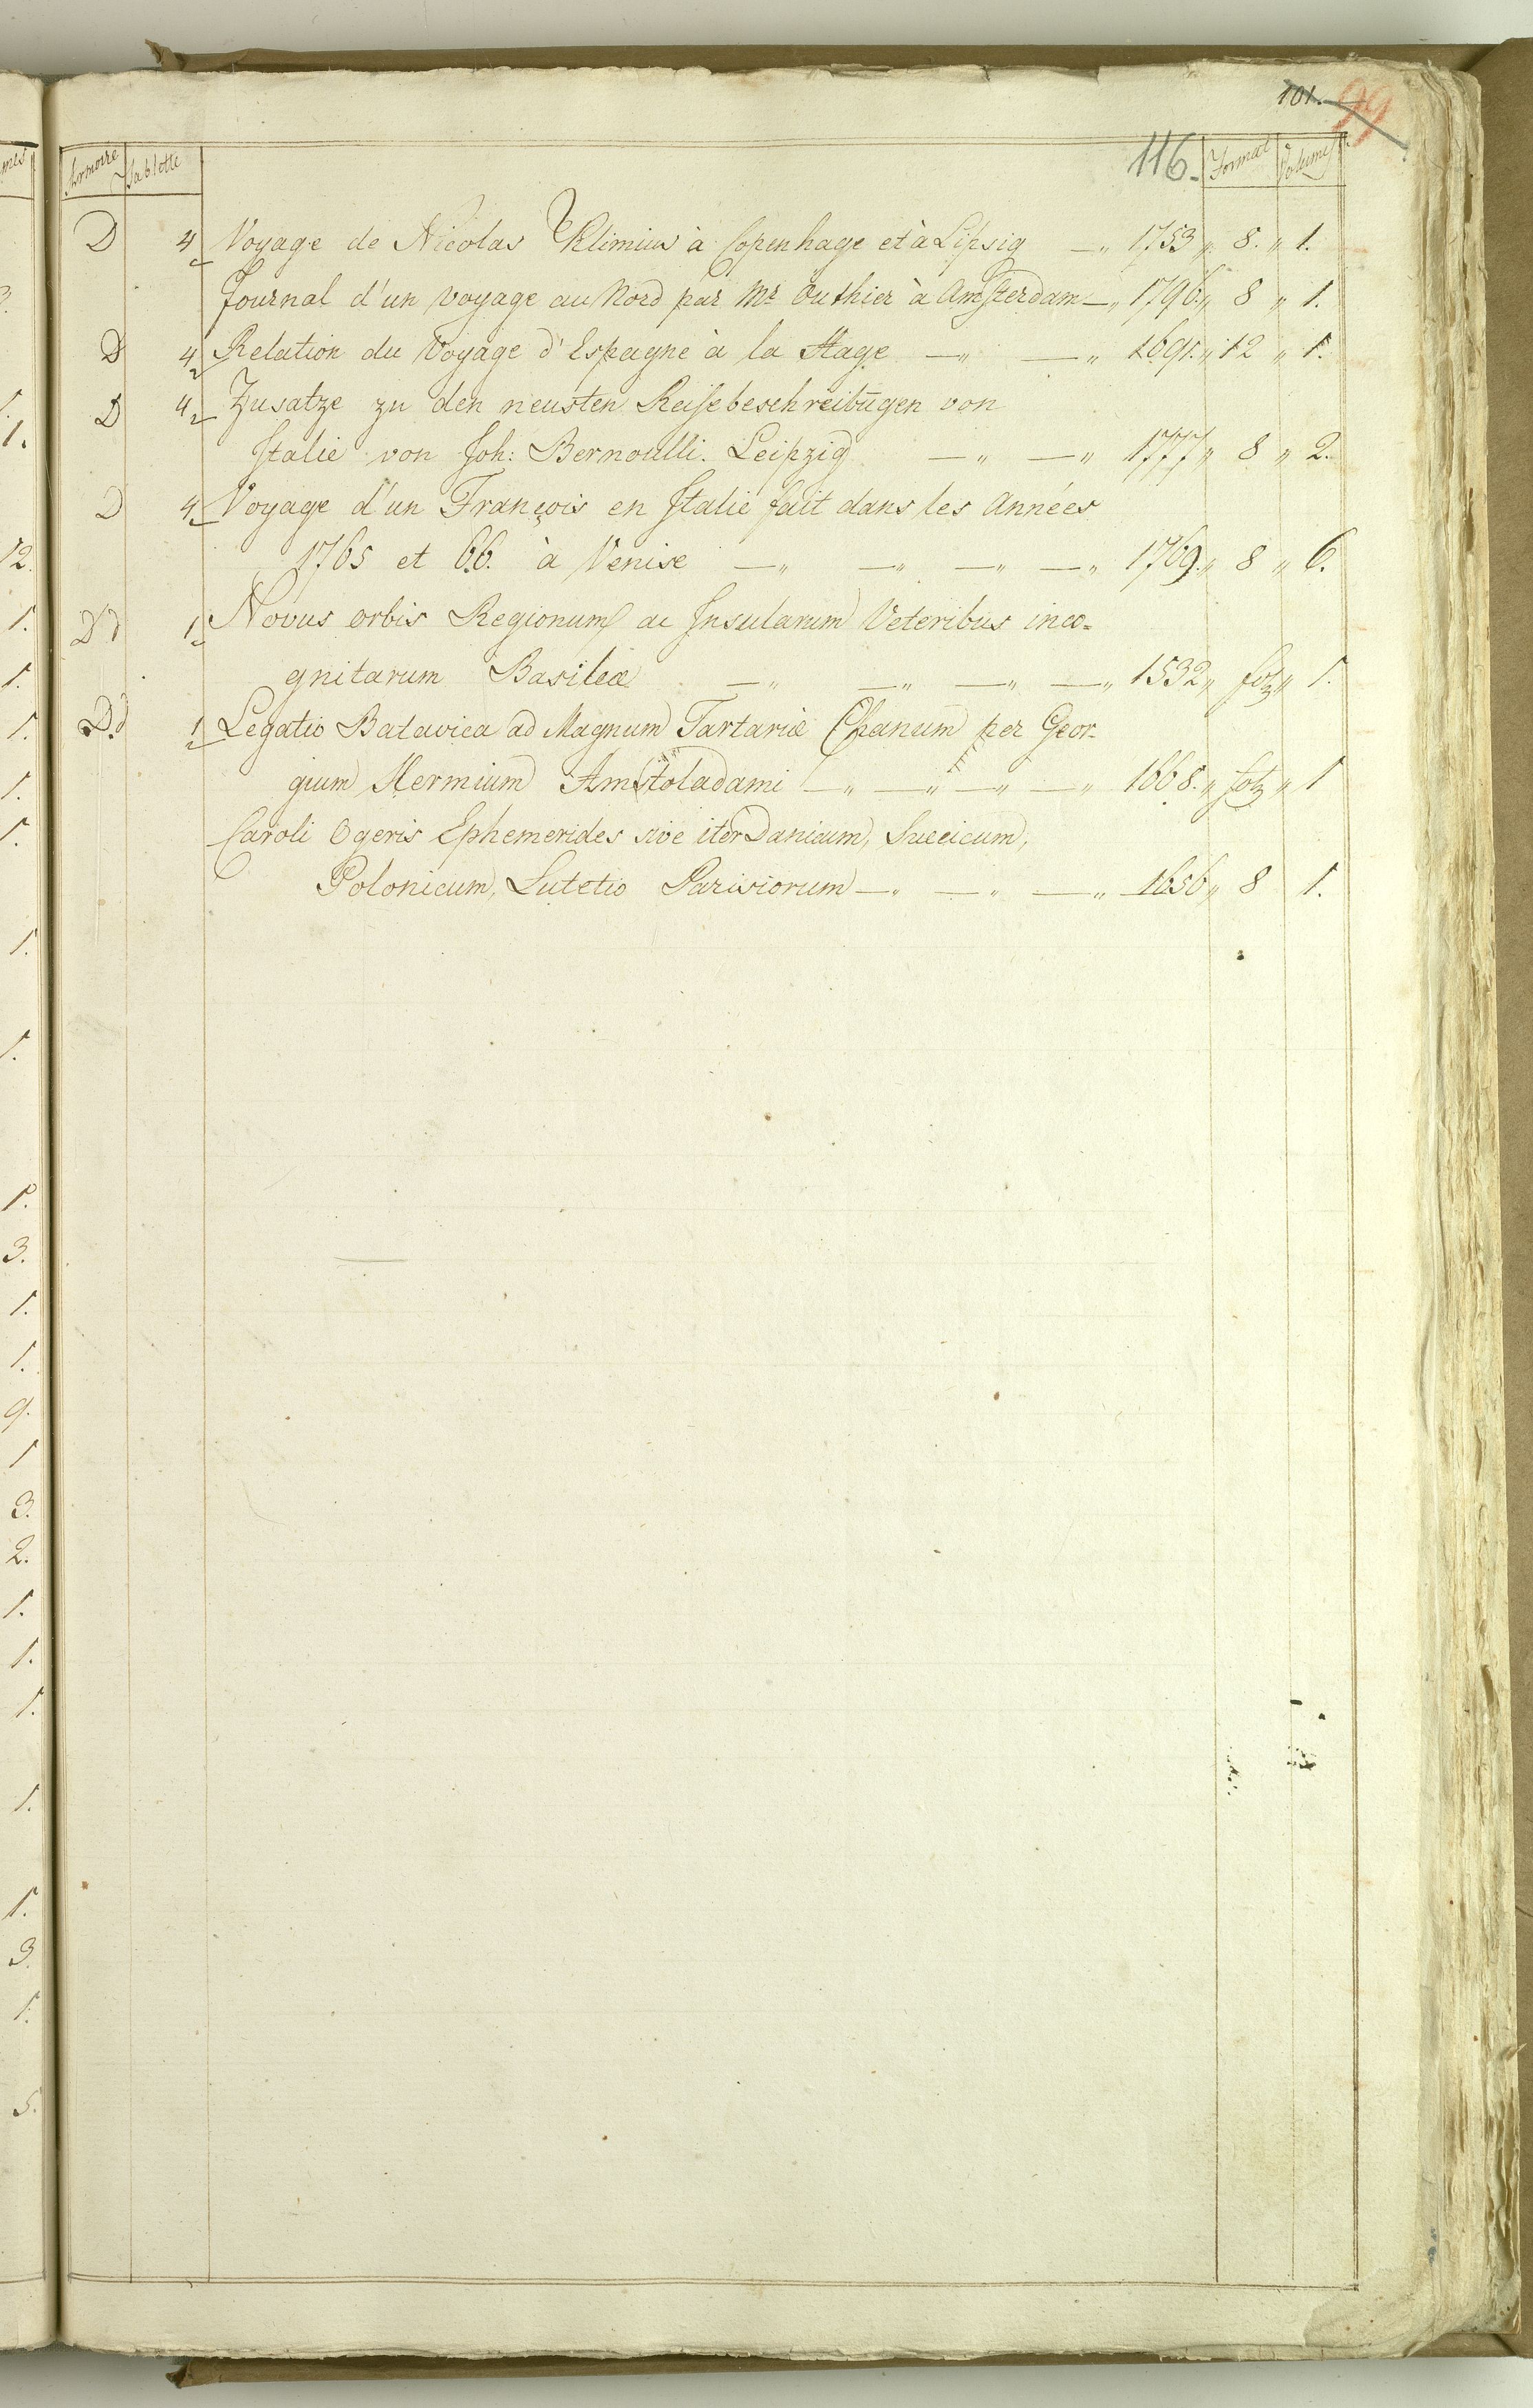 101. 99
Armoire Tablette 116. Format Volumes
D 4 Voyage de Nicolas Klimius à Copenhage et à Lipsig —„ 1753 „ 8. „ 1.
Journal d'un voyage au Nord par Mr Outhier à Amsterdam —„ 1796. „ 8 „ 1.
D 4 Relation du Voyage d'Espagne à la Hage —„ —„ 1691. „ 12 „ 1.
D 4 Zusatze zu den neusten Reisebeschreibūgen von
Italie von Joh: Bernoulli. Leipzig —„ —„ 1777 „ 8 „ 2.
D 4 Voyage d'un François en Italie fait dans les Années
1765 et 66. à Venise —„ —„ —„ —„ 1769. „ 8 „ 6.
Dd 1 Novus orbis Regionum ac Insularum Veteribus inco=
gnitarum Basileæ —„ —„ —„ —„ 1532 „ fol „ 1.
D.d 1 Legatio Batavica ad Magnum Tartariæ Chanum per Geor-
gium Hermium Amstoladami —„ —„ —„ —„ 1668. „ fol „ 1
Caroli Ogeris Ephemerides sive iter Danicum, Suecicum,
Polonicum, Lutetio Parisiorum —„ —„ —„ 1656 „ 8 1.